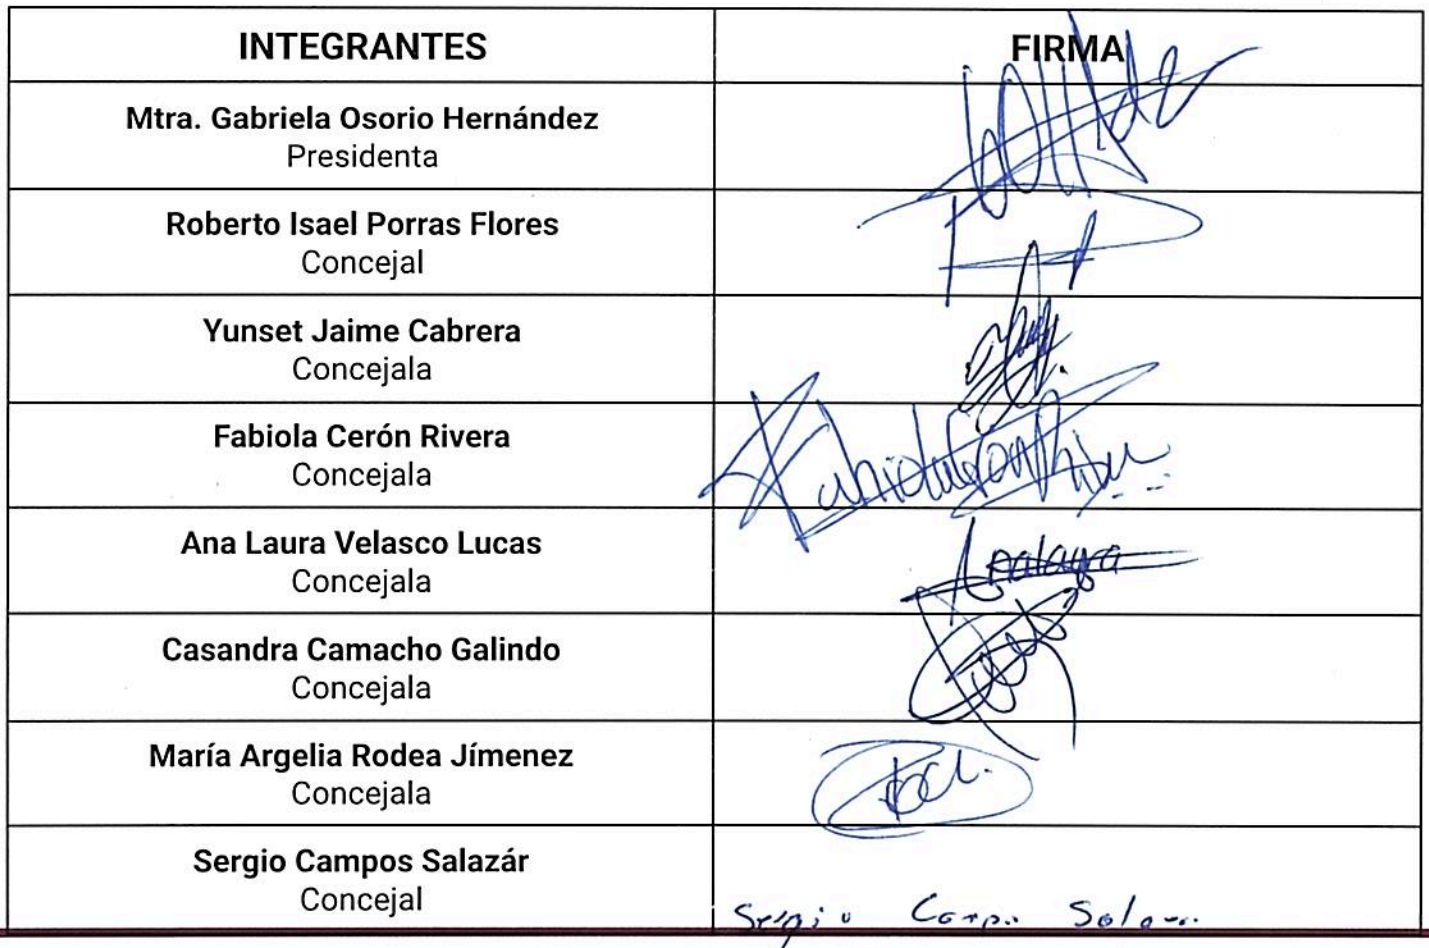 INTEGRANTES FIRMA
Mtra. Gabriela Osorio Hernández
Presidenta
Roberto Isael Porras Flores
Concejal
Yunset Jaime Cabrera
Concejala
Fabiola Cerón Rivera
Concejala
Ana Laura Velasco Lucas
Concejala
Analaura
Casandra Camacho Galindo
Concejala
María Argelia Rodea Jímenez
Concejala
Sergio Campos Salazár
Concejal
Sergio